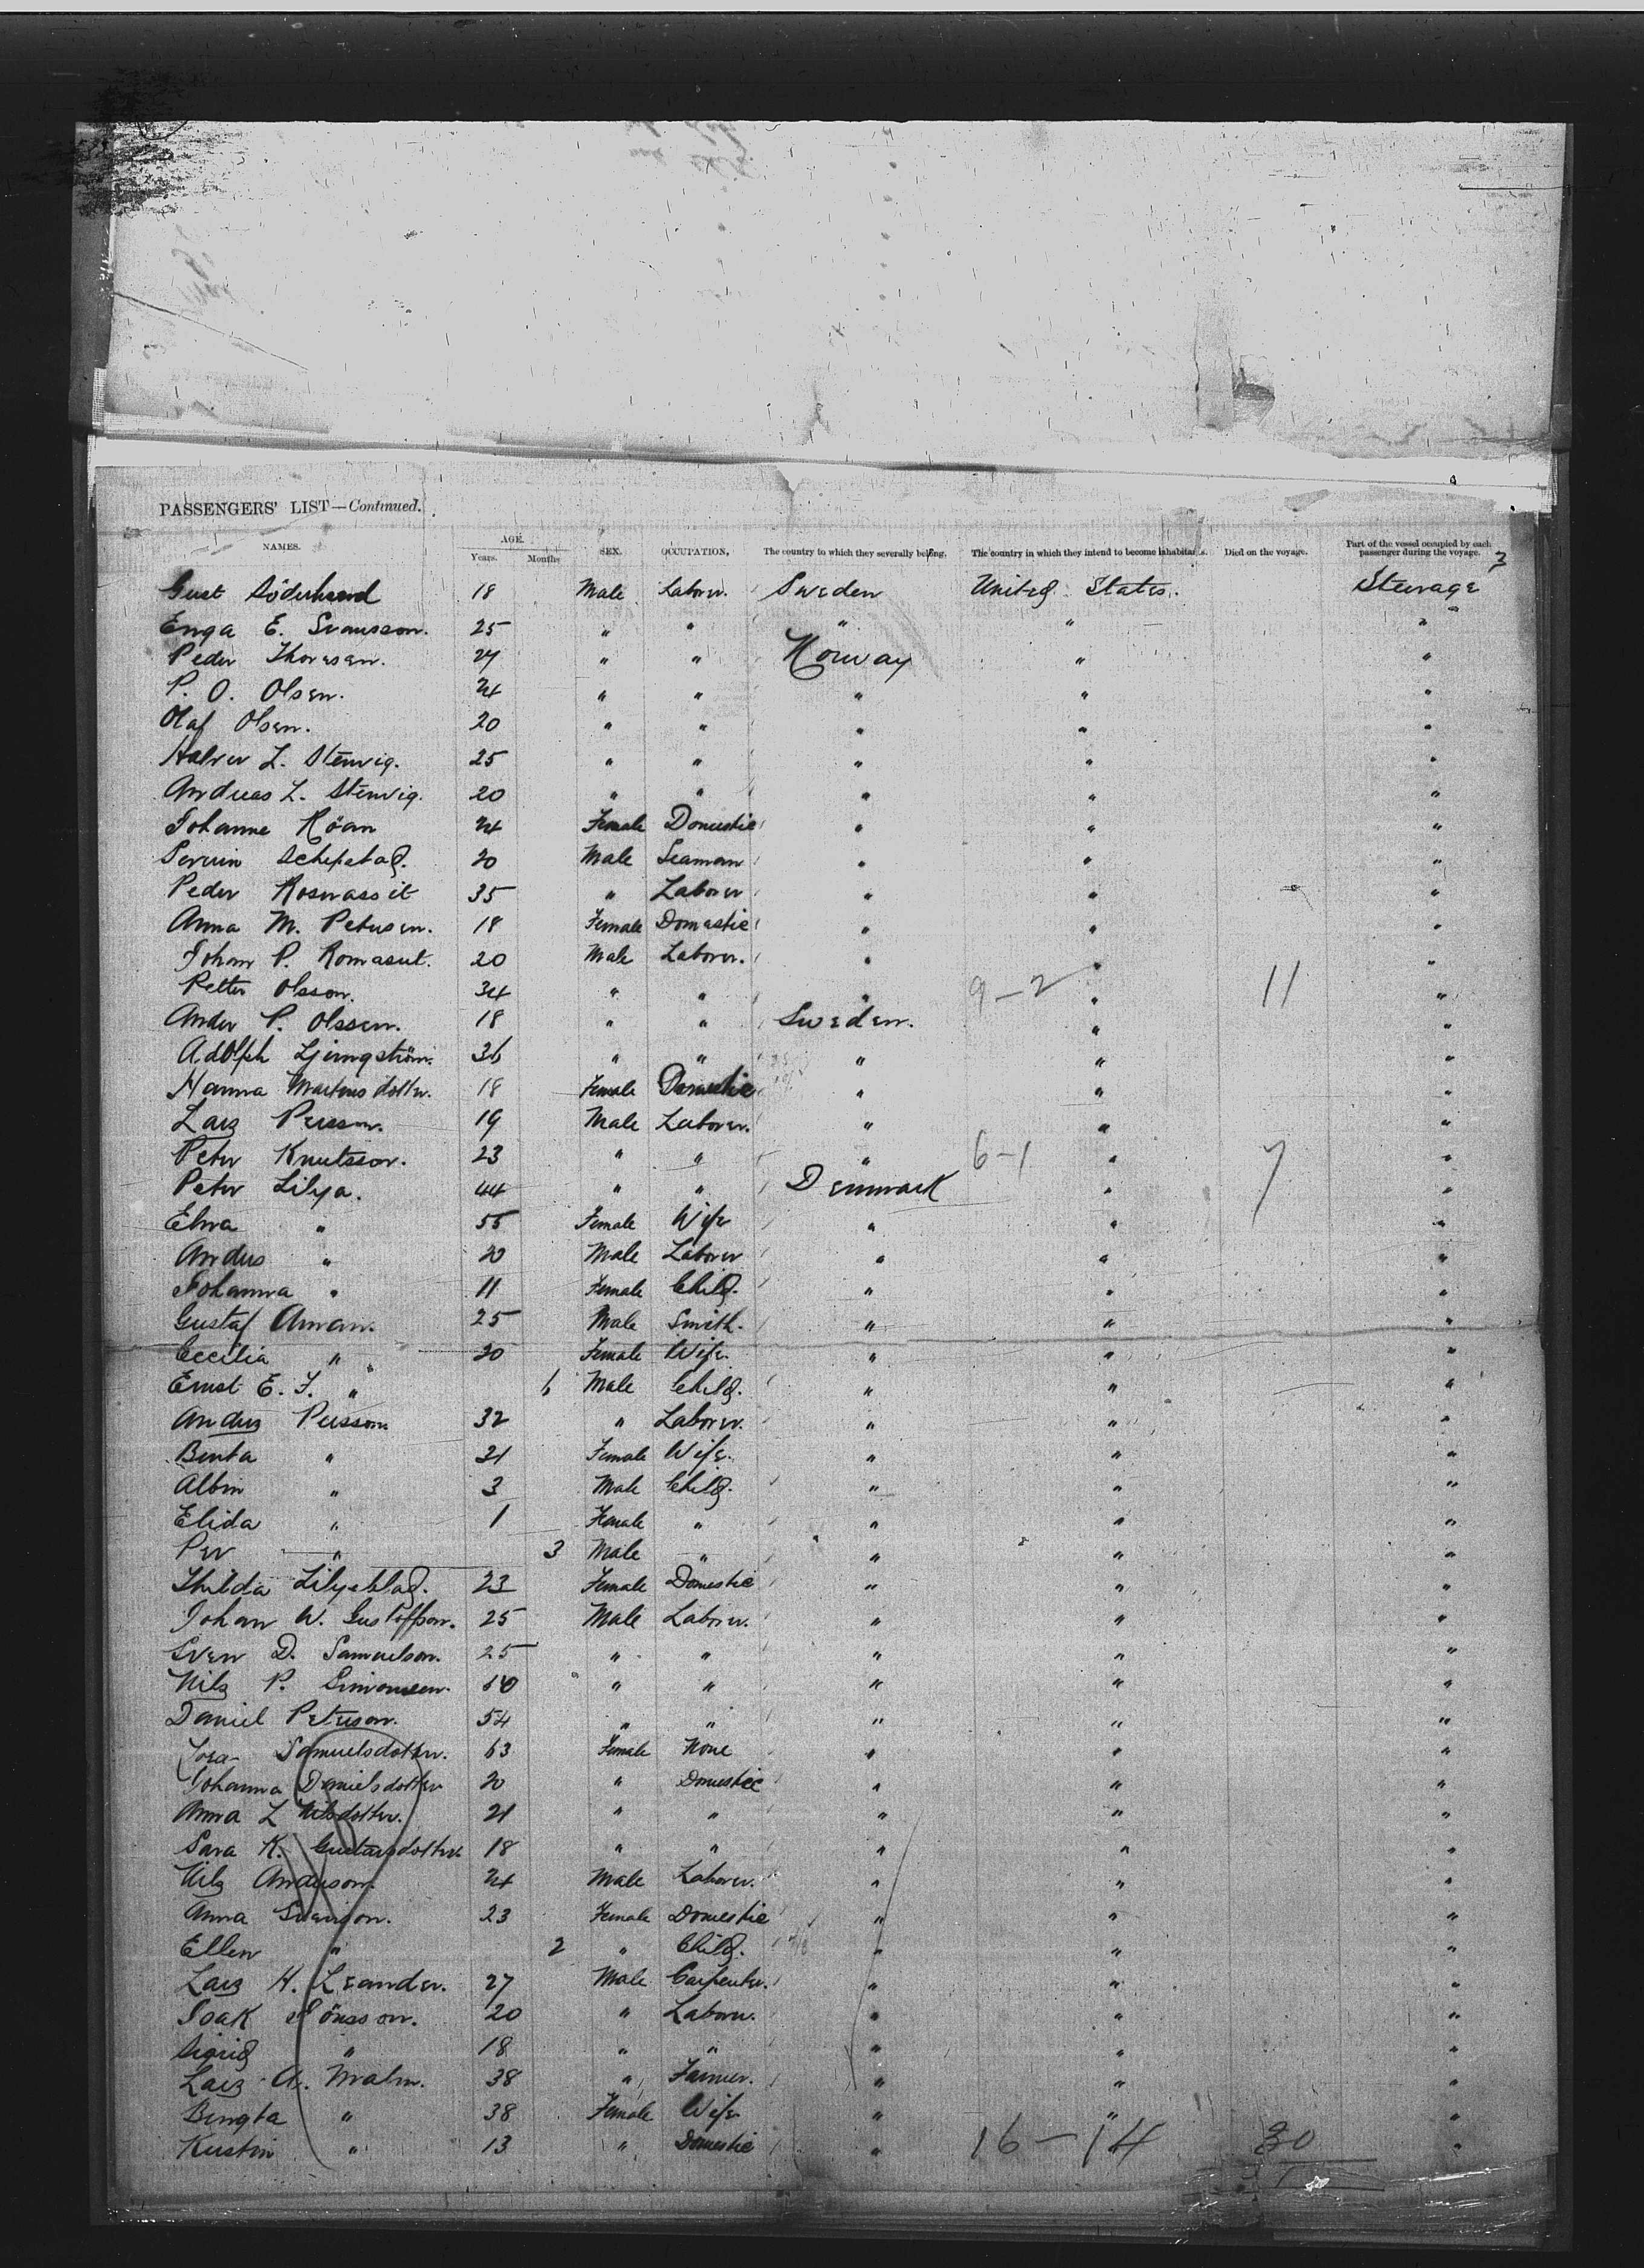 PASSENGERS' LIST—Continued.
NAMES. AGE. Years. Months SEX. OCCUPATION, The country to which they severally belong. The country in which they intend to become inhabitants. Died on the voyage. Part of the vessel occupied by each passenger during the voyage.
3
Gust 18 Male Laborer. Sweden United States. Steerage
Enga E. Svensson. 25 " " " " "
Peder Thoresen. 27 " " Norway " "
P. O. Olsen. 24 " " " " "
Olaf Olsen. 20 " " " " "
Halver L. Stenvig. 25 " " " " "
Andreas L. Stenvig. 20 " " " " "
Johanne Röan 24 Female Domestic " " "
20 Male Seaman " " "
Peder 35 " Laborer " " "
Anna M. Petersen. 18 Female Domestic " " "
Johan P. 20 Male Laborer. " " "
Petter Olsson. 34 " " " 9-2 " 11 "
Ander P. Olssen. 18 " " Sweden. " "
Adolph Ljungström. 36 " " " " "
Hanna Martens dotter. 18 Female Domestic " " "
Lars Persson. 19 Male Laborer. " " "
Peter Knutsson. 23 " " " 6-1 " 7 "
Peter Lilya. 44 " " Denmark " "
Elna " 55 Female Wife " " "
Anders " 20 Male Laborer " " "
Johanna " 11 Female Child. " " "
Gustaf Aman. 25 Male Smith. " " "
Cecilia " 30 Female Wife. " " "
Ernst E. F. " 6 Male Child. " " "
Anders Persson. 32 " Laborer. " " "
Benta " 31 Female Wife. " " "
Albin " 3 Male Child. " " "
Elida " 1 Female " " " "
Per " 3 Male " " " "
Thilda Lilyeblad. 23 Female Domestic " " "
Johan W. Gustoffson. 25 Male Laborer. " " "
Sven D. Samuelson. 25 " " " " "
Nils P. Simonsen. " " " " "
Daniel Peterson. 54 " " " " "
Samuelsdotter. 63 Female None " " "
Johanna Danielsdotter 20 " Domestic " " "
Anna L. Nilsdotter. 21 " " " " "
Sara K. Gustavsdotter 18 " " " " "
Nils Anderson. 24 Male Laborer. " " "
Anna Svenson. 23 Female Domestic " " "
Ellen " 2 " Child. " " "
Lars H. Leander. 27 Male Carpenter. " " "
Isak Jönsson. 20 " Laborer. " " "
Sigrid " 18 " " " " "
Lars A. Malm. 38 " Farmer. " " "
Bengta " 38 Female Wife " " "
Kerstin " 13 " Domestic " 16-14 30 "